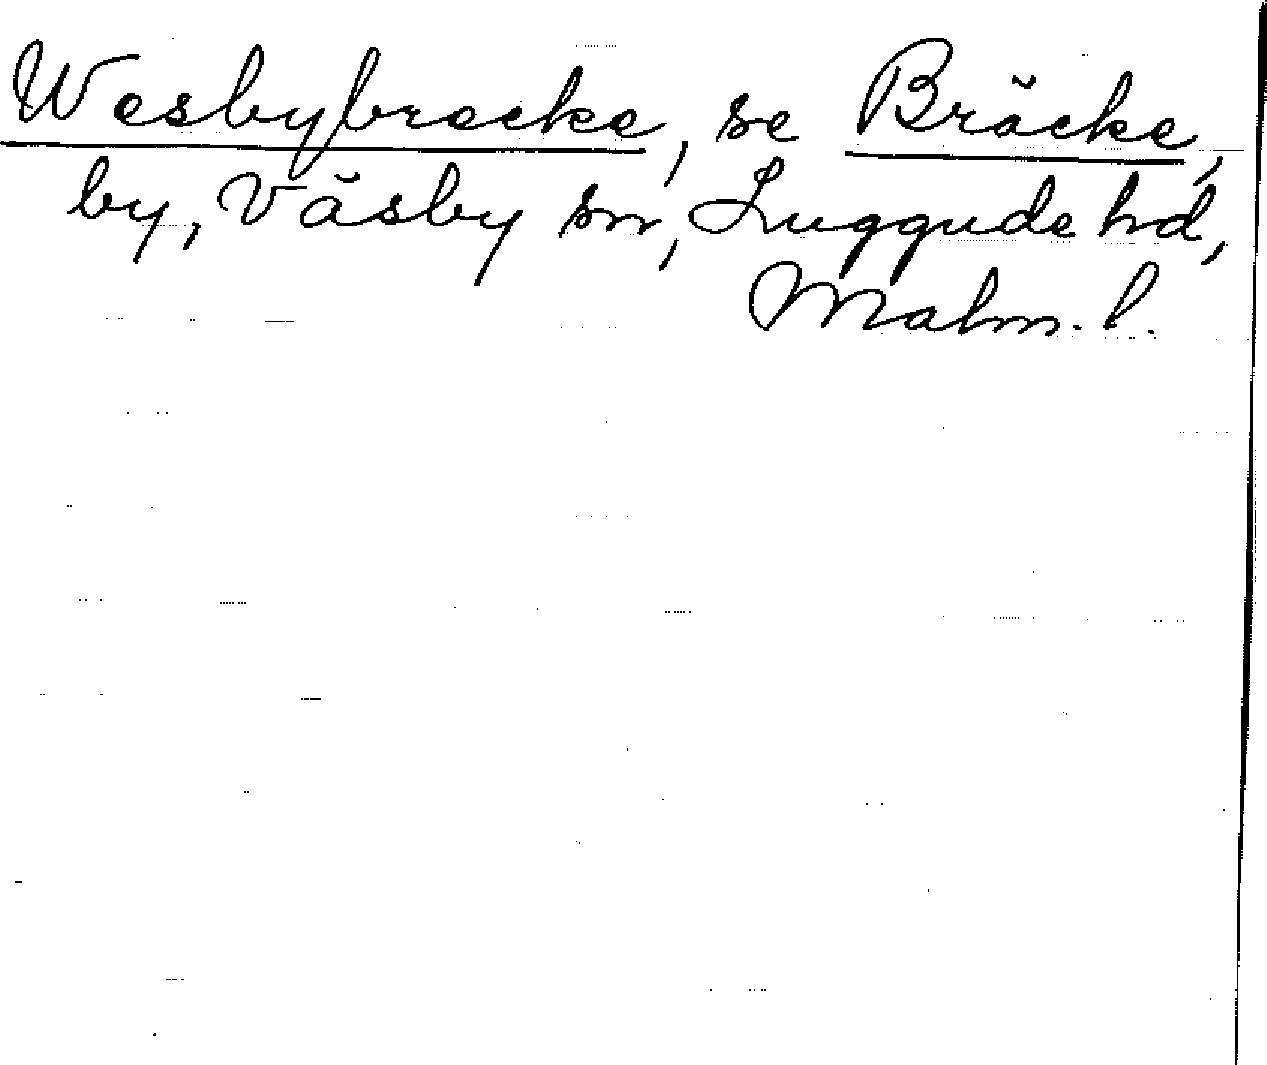 Wesbybrecke, se Bräcke,
by, Väsby sn, Luggude hd,
Malm. l.